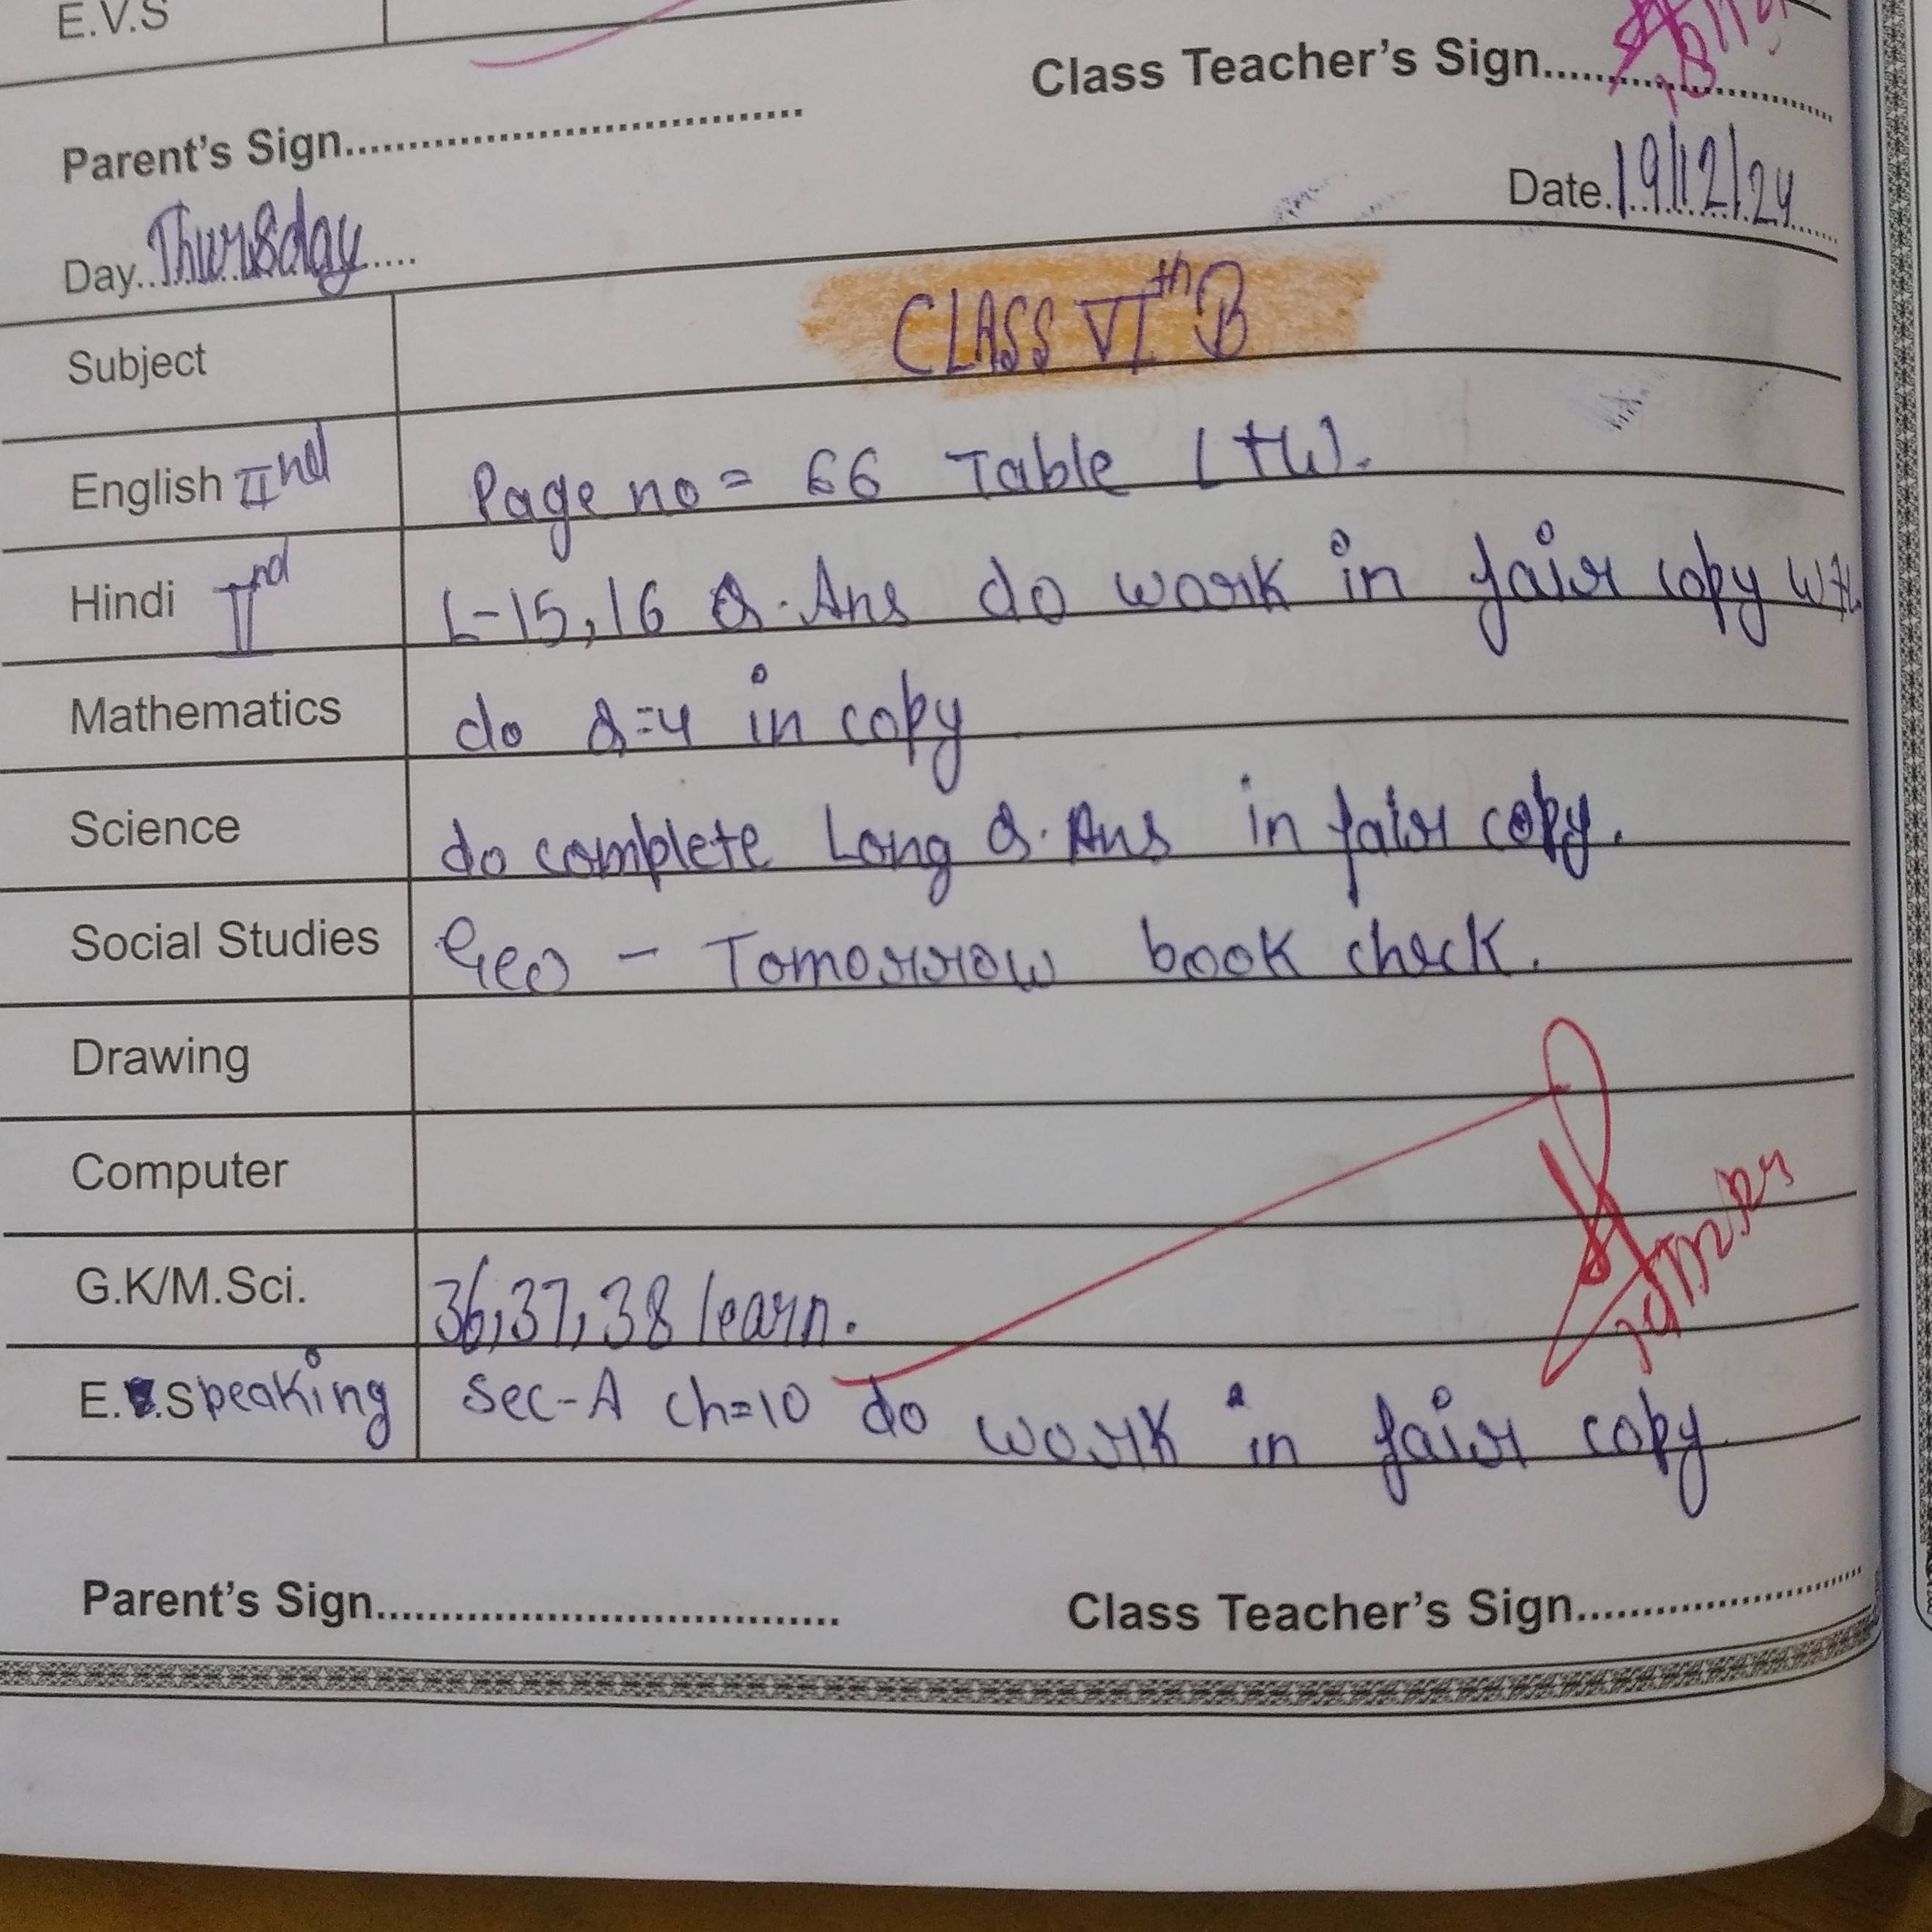 E.V.S
Class Teacher's Sign..........................
Parent's Sign....................................
Date. 19/12/24
Day.. Thursday....
Subject CLASS VIth B
English IInd Page no = 66 Table (HW).
Hindi IInd L-15,16 Q.Ans do work in fair copy
Mathematics do Q=4 in copy
Science do complete Long Q.Ans in fair copy.
Social Studies Geo - Tomorrow book check.
Drawing
Computer
G.K/M.Sci. 36,37,38 learn.
E. Speaking Sec-A ch=10 do work in fair copy
Parent's Sign....................................
Class Teacher's Sign..........................